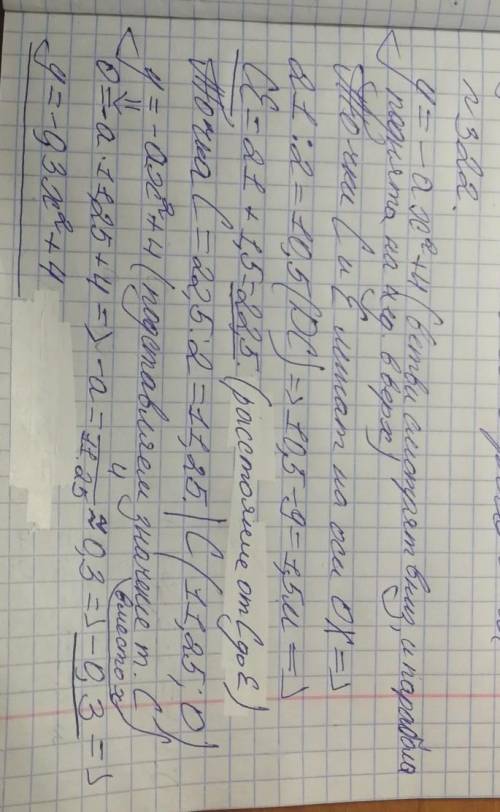 №322.
y = -ax²+4 (ветви смотрят вниз, и парабола
поднята на 4 ед. вверх)
Точки C и E лежат на оси OX =>
21:2 = 10,5 (DC) => 10,5-9=1,5м =>
CE = 21+1,5=22,5. (расстояние от C до E)
Точка C = 22,5:2 = 11,25. | C(11,25; 0)
y = -ax²+4 (подставляем значение т. C
вместо x)
0=-a·11,25+4 => -a = 4/11.25 ≈ 0,3 => -0,3 =>
y = -0,3x²+4